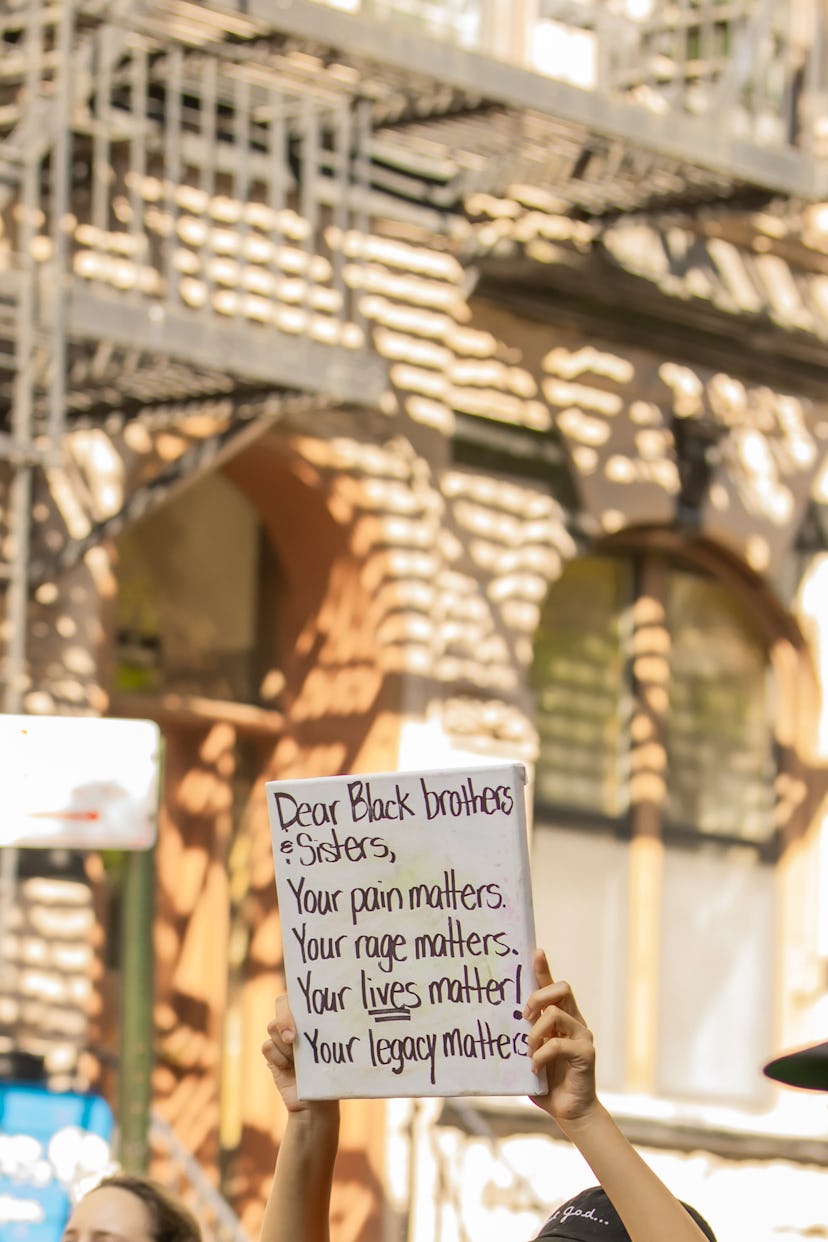 Dear Black brothers
& Sisters,
Your pain matters.
Your rage matters.
Your lives matter!
Your legacy matters
god...